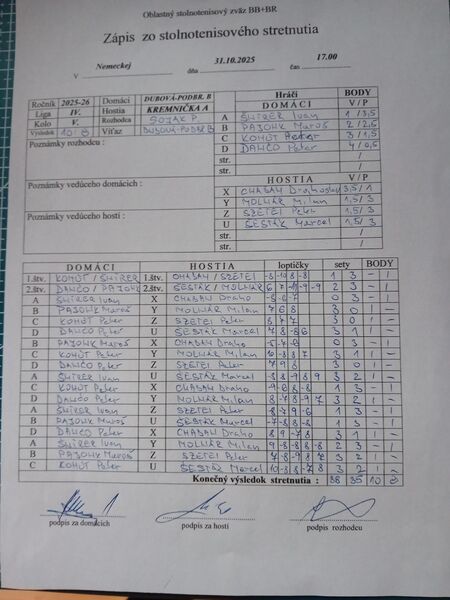 Oblastný stolnotenisový zväz BB+BR
Zápis zo stolnotenisového stretnutia
V Nemeckej dňa 31.10.2025 čas 17.00
Ročník 2025-26 Domáci DUBOVÁ-PODBR. B
Liga IV. Hostia KREMNIČKA A
Kolo V. Rozhodca SOJAK P.
Výsledok 10:8 Víťaz DUBOVÁ-PODBR B
Poznámky rozhodcu :
Poznámky vedúceho domácich :
Poznámky vedúceho hostí :
Hráči BODY
DOMÁCI V/P
A ŠHIRER Ivan 1 / 3,5
B PAJONK Maroš 2 / 2,5
C KOHÚT Peter 3 / 1,5
D DANČO Peter 4 / 0,5
str. /
str. /
HOSTIA V/P
X CHABAN Drahoslav 3,5 / 1
Y MOLNÁR Milan 1,5 / 3
Z SZETEI Peter 1,5 / 3
U ŠESTÁK Marcel 1,5 / 3
str. /
str. /
DOMÁCI HOSTIA loptičky sety BODY
1.štv. KOHÚT / ŠHIRER 1.štv. CHABAN / SZETEI 1 3 - 1
2.štv. DANČO / PAJONK 2.štv. ŠESTÁK / MOLNÁR 3 2 1 -
A ŠHIRER Ivan X CHABAN Draho 0 3 - 1
B PAJONK Maroš Y MOLNÁR Milan 7 6 8 3 0 1 -
C KOHÚT Peter Z SZETEI Peter 3 0 1 -
D DANČO Peter U ŠESTÁK Marcel 3 1 1 -
B PAJONK Maroš X CHABAN Draho 0 3 - 1
C KOHÚT Peter Y MOLNÁR Milan 3 1 1 -
D DANČO Peter Z SZETEI Peter 7 9 8 3 0 1 -
A ŠHIRER Ivan U ŠESTÁK Marcel 3 2 1 -
C KOHÚT Peter X CHABAN Draho 1 3 - 1
D DANČO Peter Y MOLNÁR Milan 3 2 1 -
A ŠHIRER Ivan Z SZETEI Peter 1 3 - 1
B PAJONK Maroš U ŠESTÁK Marcel 1 3 - 1
D DANČO Peter X CHABAN Draho 3 1 1 -
A ŠHIRER Ivan Y MOLNÁR Milan 2 3 - 1
B PAJONK Maroš Z SZETEI Peter 3 2 1 -
C KOHÚT Peter U ŠESTÁK Marcel 3 2 1 -
Konečný výsledok stretnutia : 38 35 10 8
podpis za domácich podpis za hostí podpis rozhodcu